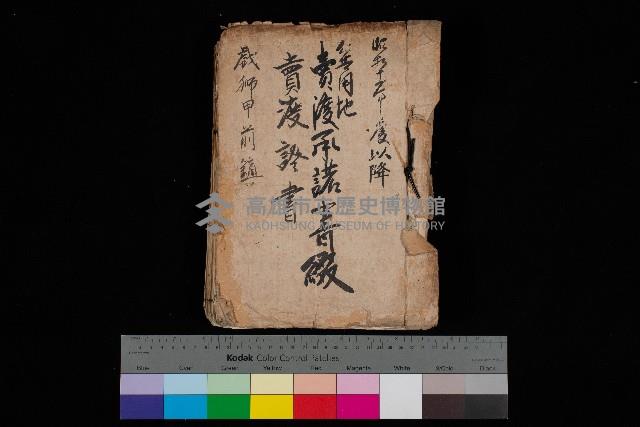 昭和十五年度以降
公共用地
賣渡承諾書綴
賣渡證書
戲獅甲前鎮
高雄市立歷史博物館
KAOHSIUNG MUSEUM OF HISTORY
Kodak Color Control Patches
Blue Cyan Green Yellow Red Magenta White 3/Color Black